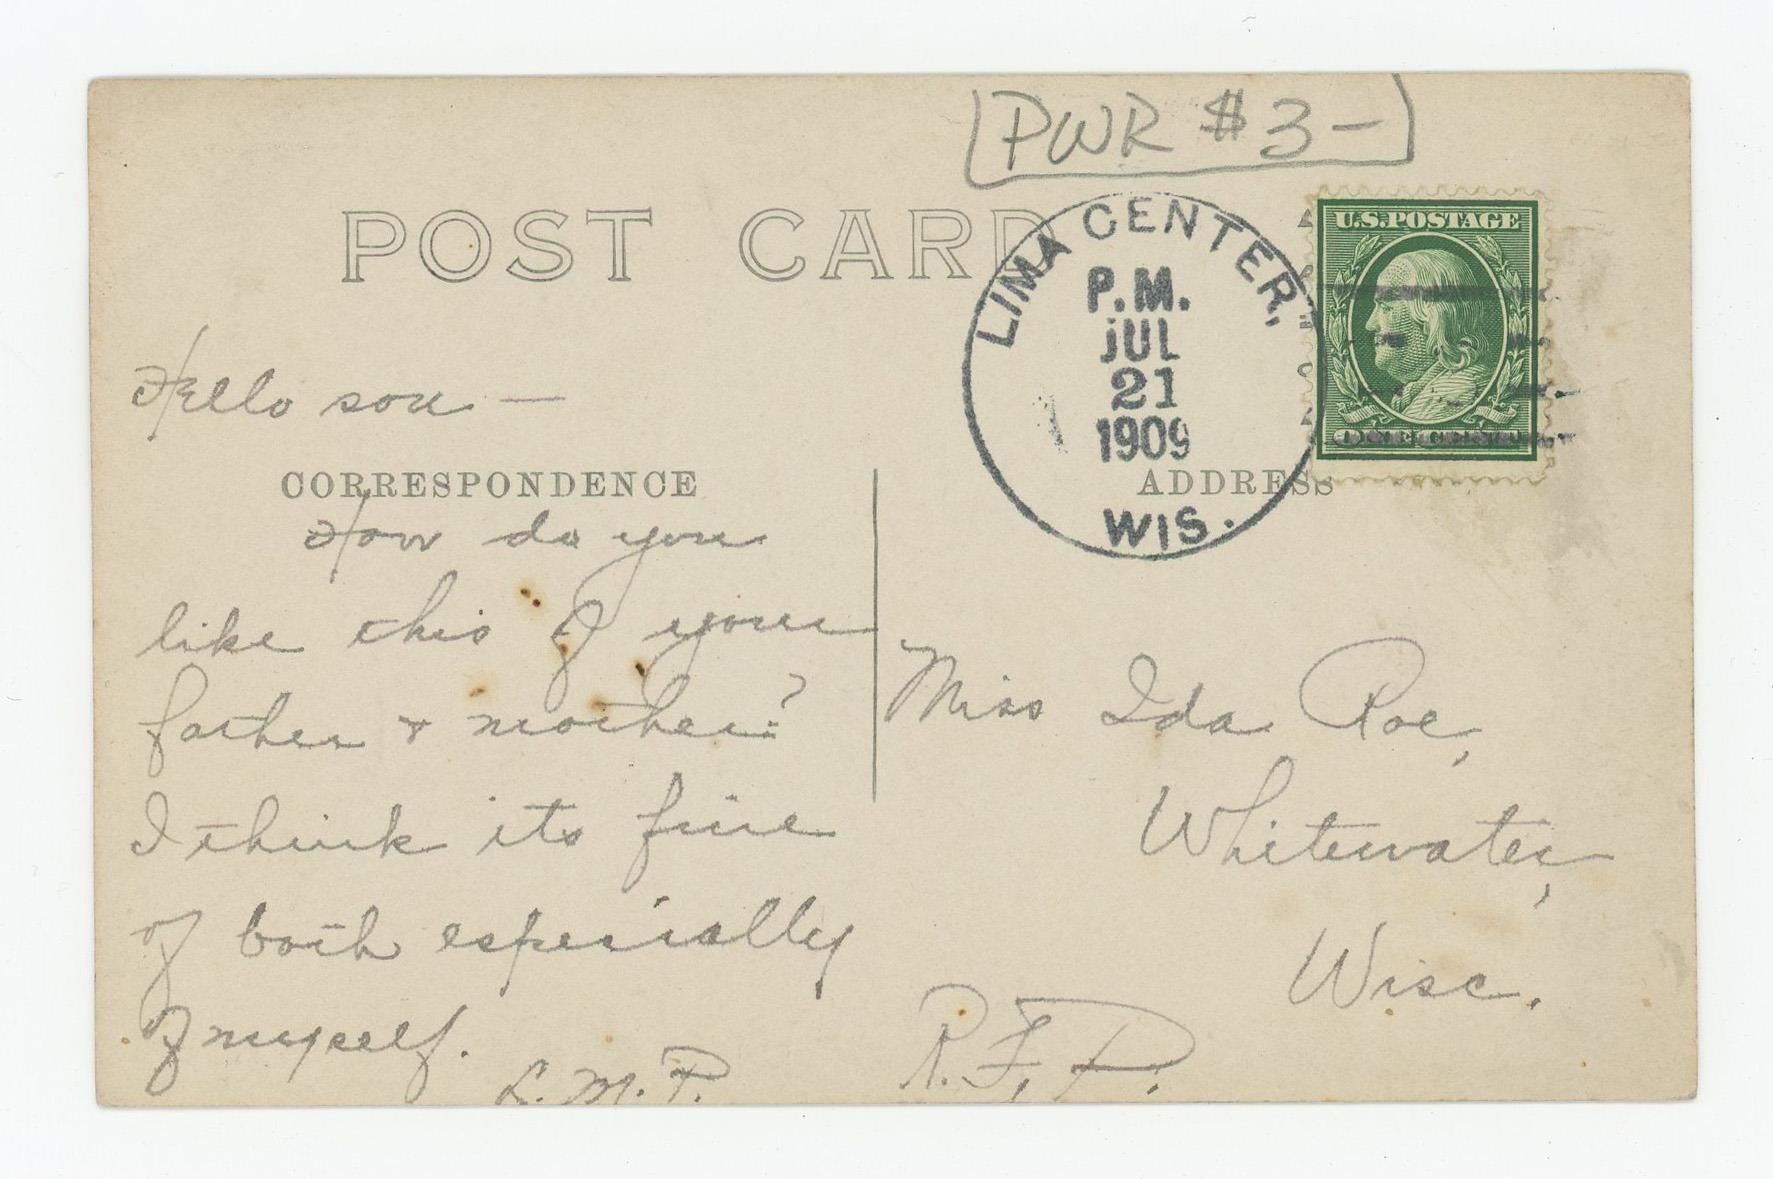 PWR $3-
POST CARD
LIMA CENTER,
P.M.
JUL
21
1909
WIS.
U.S. POSTAGE
ONE CENT
Hello son —
CORRESPONDENCE
ADDRESS
How do you
like this of your
father & mother?
I think its fine
of both especially
of myself.
L. M. P.
Miss Ida Roe,
Whitewater,
Wisc.
R. F. D.